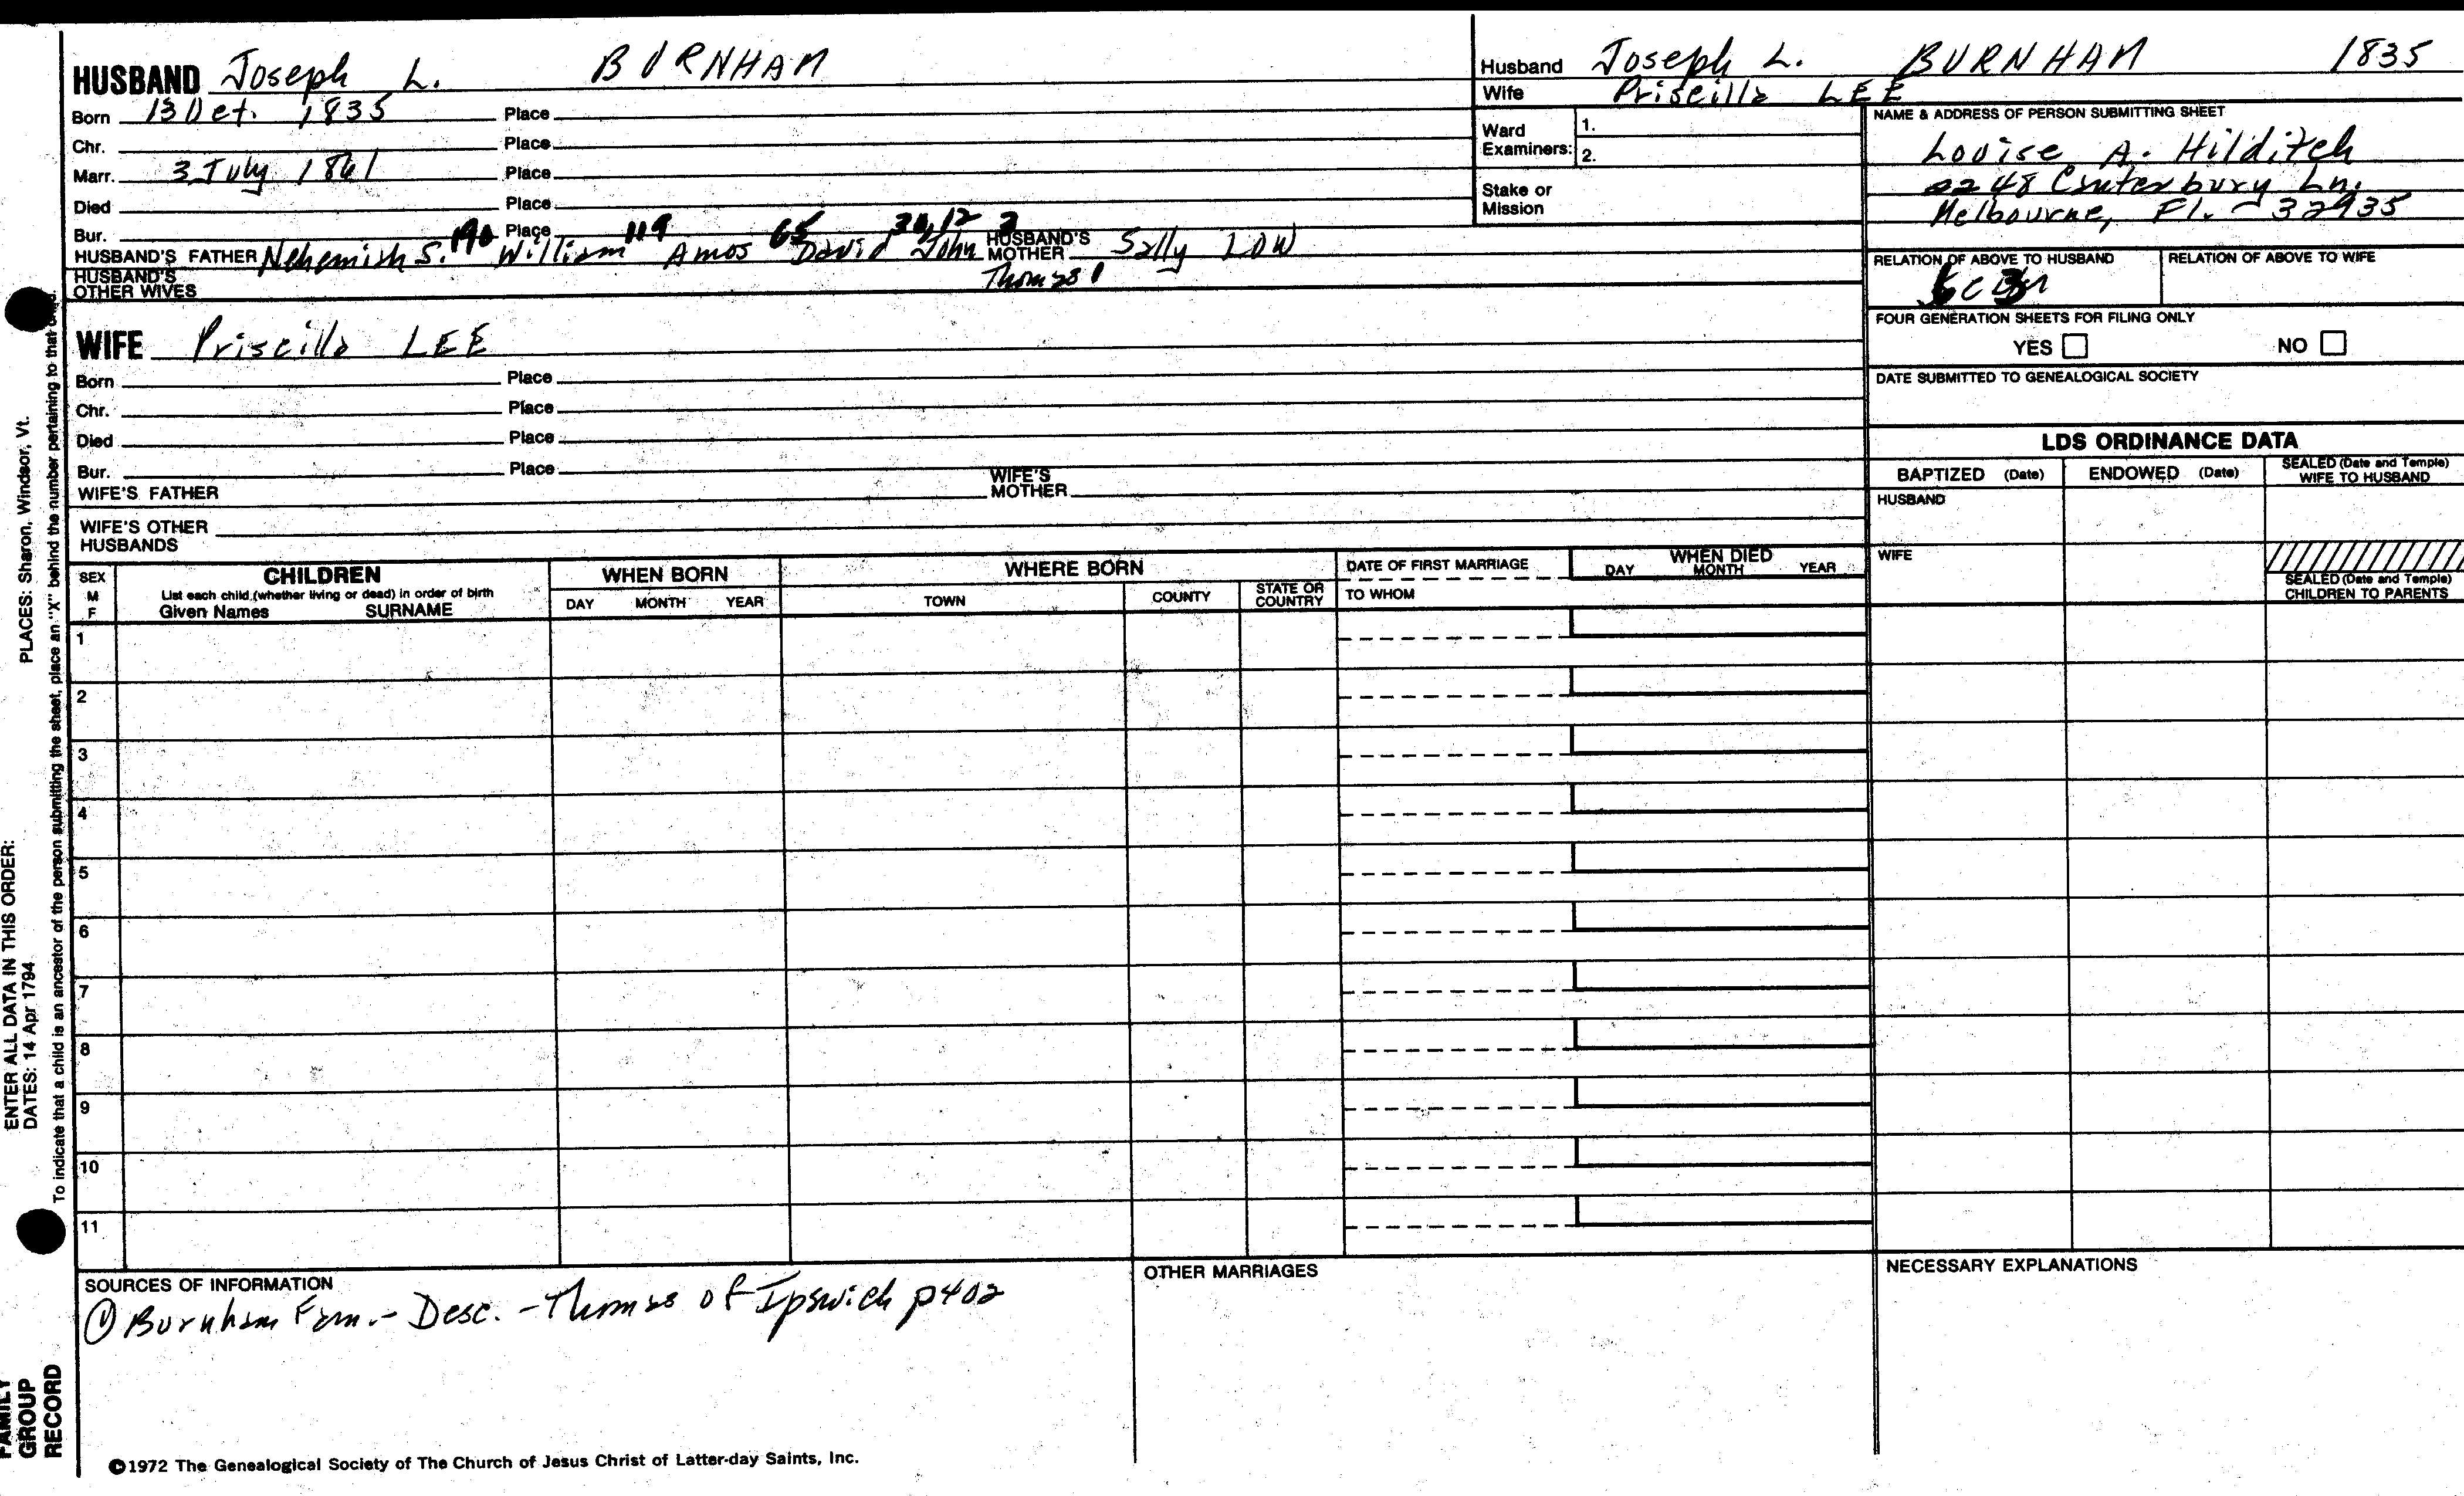 HUSBAND Joseph L. BURNHAM
Born 13 Oct. 1835 Place
Chr. Place
Marr. 3 July 1861 Place
Died Place
Bur. Place
190 119 65 12 2
HUSBAND'S FATHER Nehemiah S. William Amos David John HUSBAND'S MOTHER Sally LOW
Thomas 1
HUSBAND'S OTHER WIVES
Husband Joseph L. BURNHAM 1835
Wife Priscilla LEE
Ward Examiners: 1.
2.
Stake or Mission
NAME & ADDRESS OF PERSON SUBMITTING SHEET
Louise A. Hilditch
2248 Canterbury Ln.
Melbourne, Fl. - 32935
RELATION OF ABOVE TO HUSBAND RELATION OF ABOVE TO WIFE
FOUR GENERATION SHEETS FOR FILING ONLY
YES NO
DATE SUBMITTED TO GENEALOGICAL SOCIETY
WIFE Priscilla LEE
Born Place
Chr. Place
Died Place
Bur. Place
WIFE'S FATHER WIFE'S MOTHER
WIFE'S OTHER HUSBANDS
LDS ORDINANCE DATA
BAPTIZED (Date) ENDOWED (Date) SEALED (Date and Temple) WIFE TO HUSBAND
HUSBAND
WIFE
SEALED (Date and Temple) CHILDREN TO PARENTS
SEX M F
CHILDREN
List each child (whether living or dead) in order of birth
Given Names SURNAME
WHEN BORN
DAY MONTH YEAR
WHERE BORN
TOWN COUNTY STATE OR COUNTRY
DATE OF FIRST MARRIAGE
TO WHOM
WHEN DIED
DAY MONTH YEAR
1
2
3
4
5
6
7
8
9
10
11
SOURCES OF INFORMATION
① Burnham Fam. - Desc. - Thomas of Ipswich p402
OTHER MARRIAGES
NECESSARY EXPLANATIONS
©1972 The Genealogical Society of The Church of Jesus Christ of Latter-day Saints, Inc.
FAMILY GROUP RECORD
ENTER ALL DATA IN THIS ORDER:
DATES: 14 Apr 1794
PLACES: Sharon, Windsor, Vt.
To indicate that a child is an ancestor of the person submitting the sheet, place an "X" behind the number pertaining to that child.